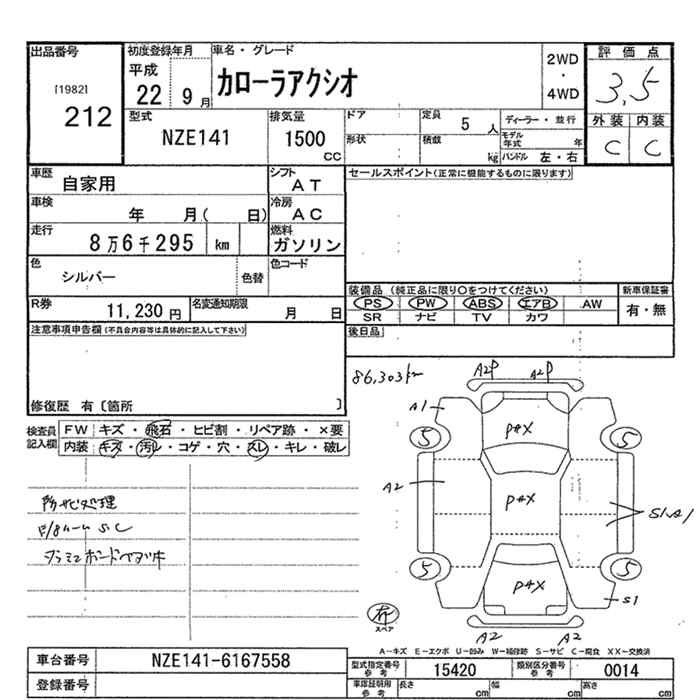 出品番号
[1982]
212
初度登録年月
平成
22 9月
車名・グレード
カローラアクシオ
2WD
・
4WD
評価点
3.5
外装 内装
C C
型式
NZE141
排気量
1500
CC
ドア
形状
定員
5 人
積載
kg
ディーラー・並行
モデル年式 年
ハンドル 左・右
車歴
自家用
シフト
AT
車検
年 月( 日)
冷房
AC
走行
8万6千295 km
燃料
ガソリン
色
シルバー
色替
色コード
R券
11,230 円
名変通知期限
月 日
セールスポイント(正常に機能するものに限ります)
装備品 (純正品に限り○をつけてください)
新車保証書
PS PW ABS エアB AW
有・無
SR ナビ TV カワ
後日品
注意事項申告欄(不具合内容等は具体的に記入して下さい)
修復歴 有〔箇所 〕
検査員記入欄
FW キズ・飛石・ヒビ割・リペア跡・×要
内装 キズ・汚レ・コゲ・穴・スレ・キレ・破レ
防サビ処理
SC
86,303km
A2P A2P
A1
5 5
P#X
A2
P#X
S1,A1
5 5
P#X
S1
スペア
A2 A2
A-キズ E-エクボ U-凹み W-補修跡 S-サビ C-腐食 XX-交換済
車台番号
NZE141-6167558
登録番号
型式指定番号
参考
15420
類別区分番号
参考
0014
車庫証明用
参考
長さ cm
幅 cm
高さ cm